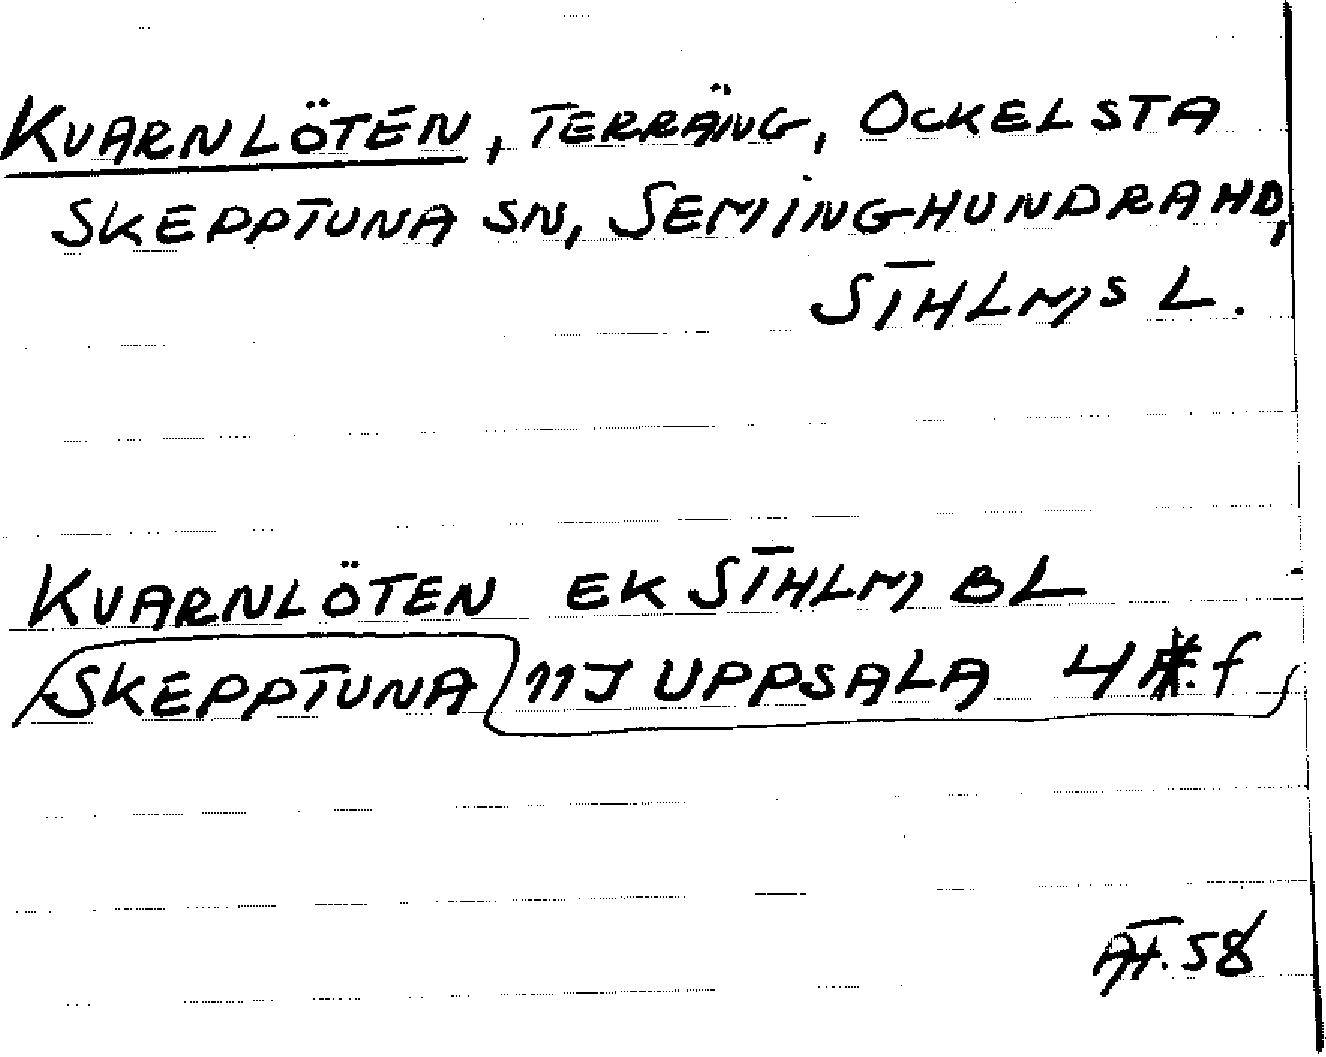 KVARNLÖTEN, TERRÄNG, OCKELSTA
SKEPPTUNA SN, SEMINGHUNDRA HD,
STHLMS L.
KVARNLÖTEN EK STHLM BL
SKEPPTUNA 11J UPPSALA 4 f
58